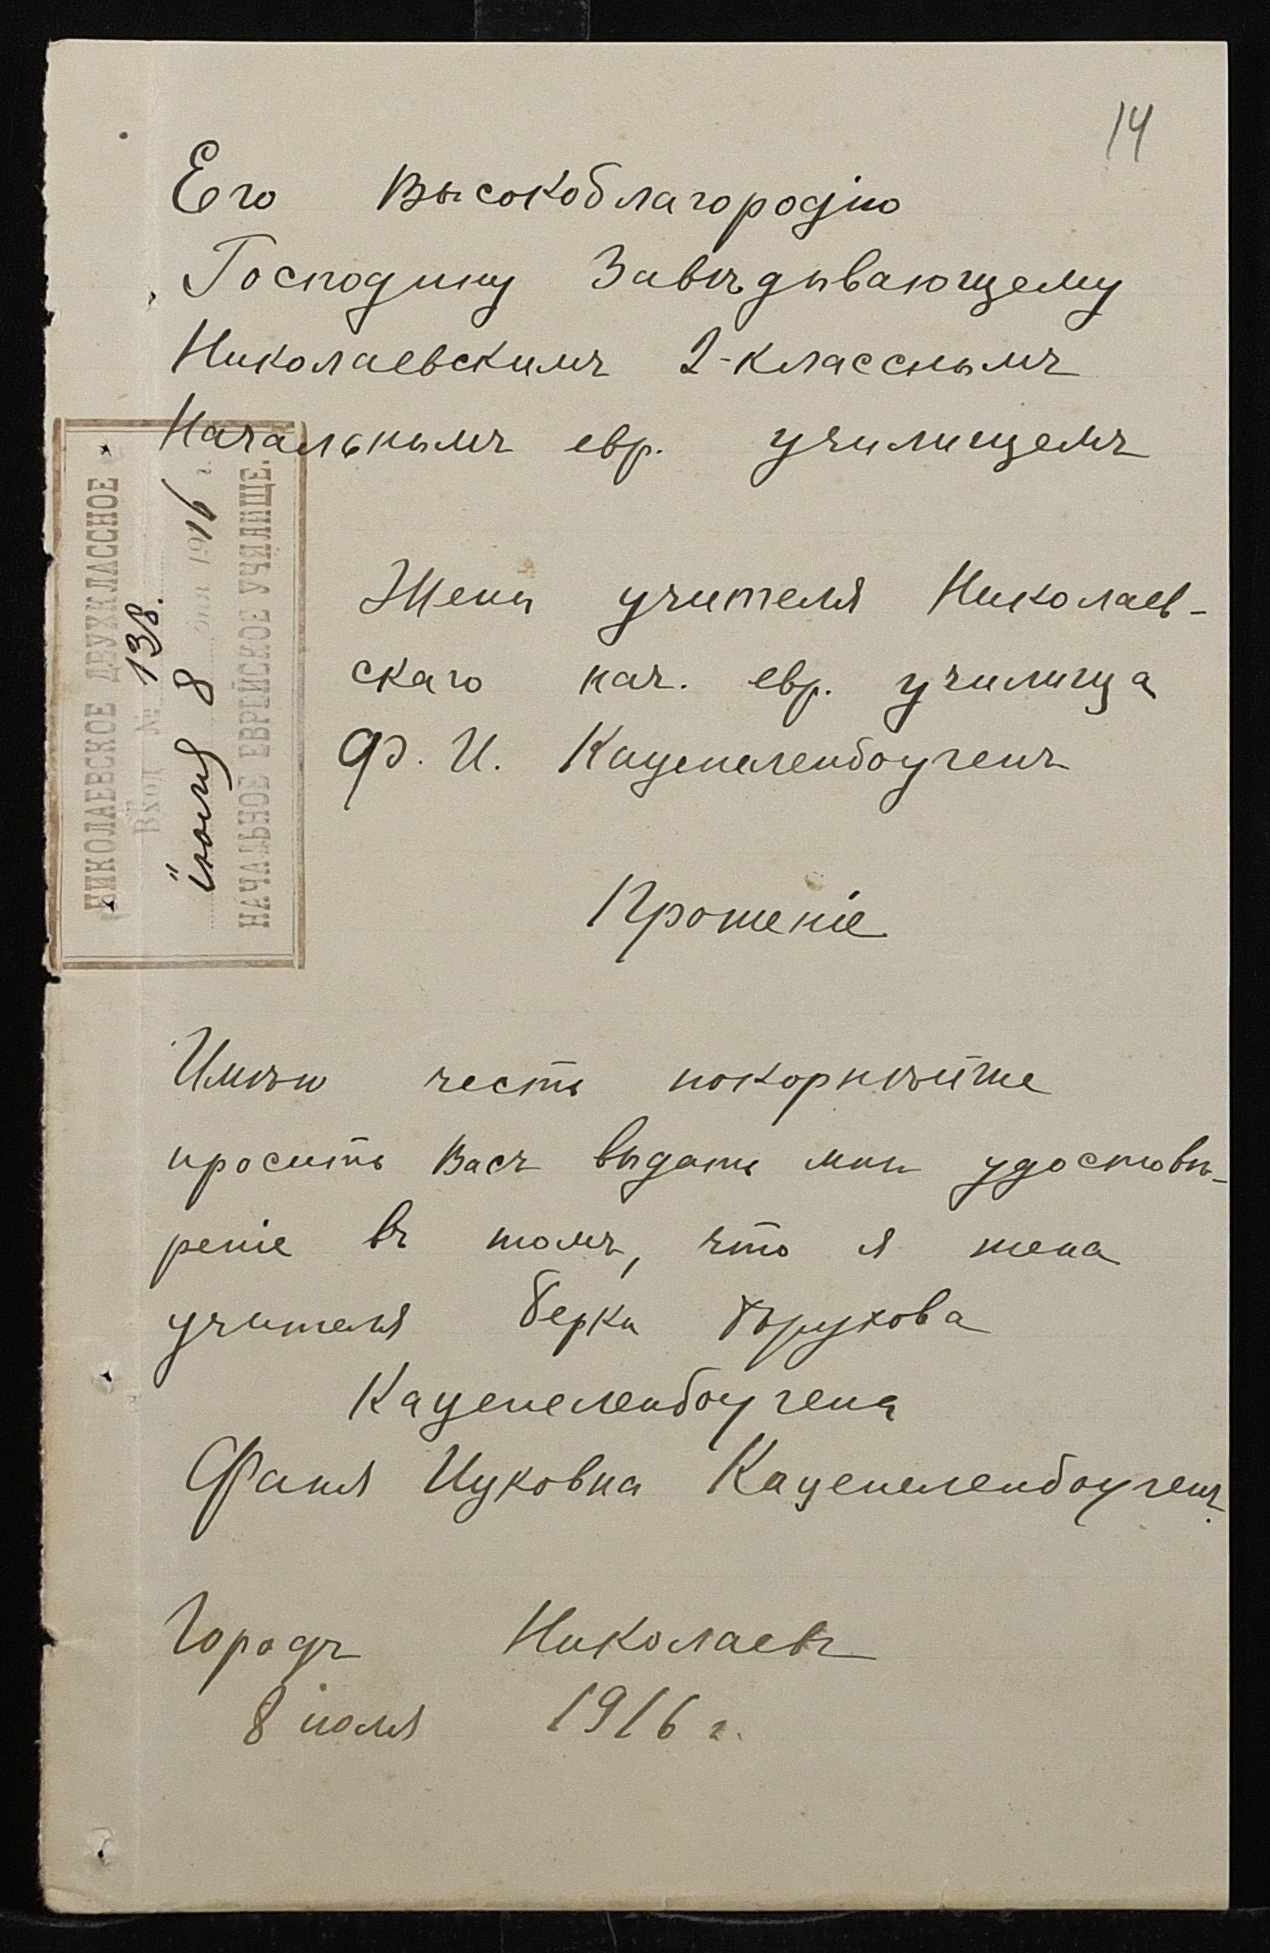 14
Его Высокоблагородію
Господину Завѣдывающему
Николаевскимъ 2-класснымъ
Начальнымъ евр. училищемъ
НИКОЛАЕВСКОЕ ДВУХКЛАССНОЕ
Вход. № 138.
іюля 8 дня 1916 г.
НАЧАЛЬНОЕ ЕВРЕЙСКОЕ УЧИЛИЩЕ.
Жены учителя Николаев-
скаго нач. евр. училища
Ф. И. Каценеленбоугенъ
Прошеніе
Имѣю честь покорнѣйше
просить Васъ выдать мнѣ удостовѣ-
реніе въ томъ, что я жена
учителя Берки Борухова
Каценеленбоугена
Фаня Ицковна Каценеленбоугенъ.
Городъ Николаевъ
8 іюля 1916 г.